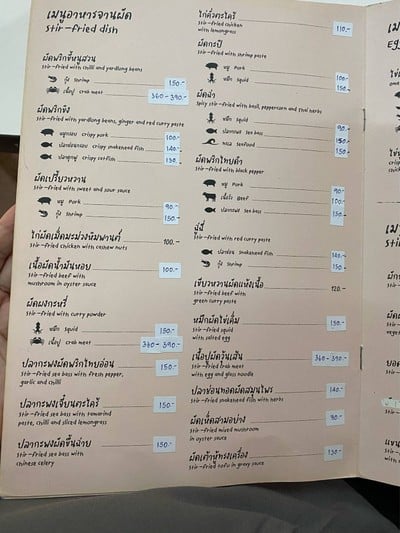 เมนูอาหารจานผัด
Stir-fried dish
ผัดพริกขี้หนูสวน
Stir-fried with chilli and yardlong beans
กุ้ง Shrimp 150.-
เนื้อปู Crab meat 360-390.-
ผัดพริกขิง
Stir-fried with yardlong beans, ginger and red curry paste
หมูกรอบ Crispy pork 100.-
ปลาช่อนกรอบ Crispy snakehead fish 140.-
ปลาดุกฟู Crispy catfish 130.-
ผัดเปรี้ยวหวาน
Stir-fried with sweet and sour sauce
หมู Pork 90.-
กุ้ง Shrimp 150.-
ไก่ผัดเม็ดมะม่วงหิมพานต์ 100.-
Stir-fried chicken with cashew nuts
เนื้อผัดน้ำมันหอย 100.-
Stir-fried beef with
mushroom in oyster sauce
ผัดผงกะหรี่
Stir-fried with curry powder
หมึก Squid 150.-
เนื้อปู Crab meat 360-390.-
ปลากะพงผัดพริกไทยอ่อน 150.-
Stir-fried sea bass with fresh pepper,
garlic and chilli
ปลากะพงเจี๋ยนตะไคร้ 150.-
Stir-fried sea bass with tamarind
paste, chilli and sliced lemongrass
ปลากะพงผัดขึ้นฉ่าย 150.-
Stir-fried sea bass with
chinese celery
ไก่คั่วตะไคร้ 110.-
Stir-fried chicken
with lemongrass
ผัดกะปิ
Stir-fried with shrimp paste
หมู Pork 100.-
หมึก Squid 150.-
ผัดฉ่า
Spicy stir-fried with basil, peppercorn and thai herbs
หมึก Squid 90.-
ปลากะพง Sea bass 150.-
ทะเล Seafood 150.-
ผัดพริกไทยดำ
Stir-fried with black pepper
หมู Pork 90.-
เนื้อวัว Beef 100.-
ปลากะพง Sea bass 150.-
ฉู่ฉี่
Stir-fried with red curry paste
ปลาช่อน Snakehead fish 140.-
กุ้ง Shrimp 150.-
เขียวหวานผัดแห้งเนื้อ 120.-
Stir-fried beef with
green curry paste
หมึกผัดไข่เค็ม 150.-
Stir-fried squid
with salted egg
เนื้อปูผัดวุ้นเส้น 360-390.-
Stir-fried crab meat
with egg and glass noodle
ปลาช่อนทอดผัดสมุนไพร 140.-
Stir-fried snakehead fish with herbs
ผัดเห็ดสามอย่าง 90.-
Stir-fried mixed mushroom
in oyster sauce
ผัดเต้าหู้ทรงเครื่อง 130.-
Stir-fried tofu in gravy sauce